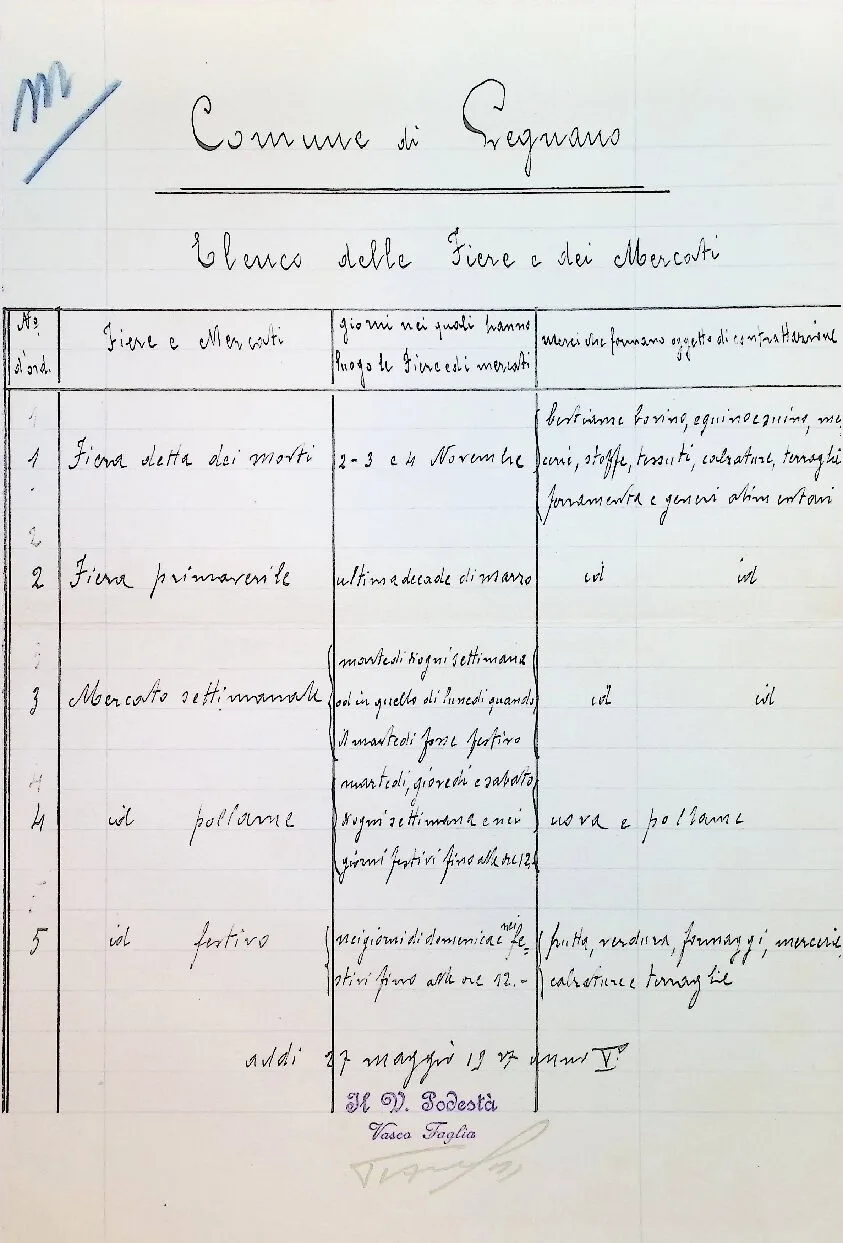 m
Comune di Legnano
Elenco delle Fiere e dei Mercati
No.
d'ord.
Fiere e Mercati
giorni nei quali hanno
luogo le Fiere ed i mercati
merci che formano oggetto di contrattazione
1
1
Fiera detta dei morti
2-3 e 4 Novembre
bestiame bovino, equino e suino, me
cerie, stoffe, tessuti, calzature, terraglie
ferramenta e generi alimentari
2
2
Fiera primaverile
ultima decade di marzo
id id
3
3
Mercato settimanale
martedì d'ogni settimana
od in quello di lunedì quando
il martedì fosse festivo
id id
4
4
id pollame
martedì, giovedì e sabato
d'ogni settimana e nei
giorni festivi fino alle ore 12.
uova e pollame
5
id festivo
nei giorni di domenica e nei fe-
stivi fino alle ore 12.-
frutta, verdura, formaggi, mercerie
calzature e terraglie
addì 27 maggio 1927 anno V°
Il V. Podestà
Vasco Taglia